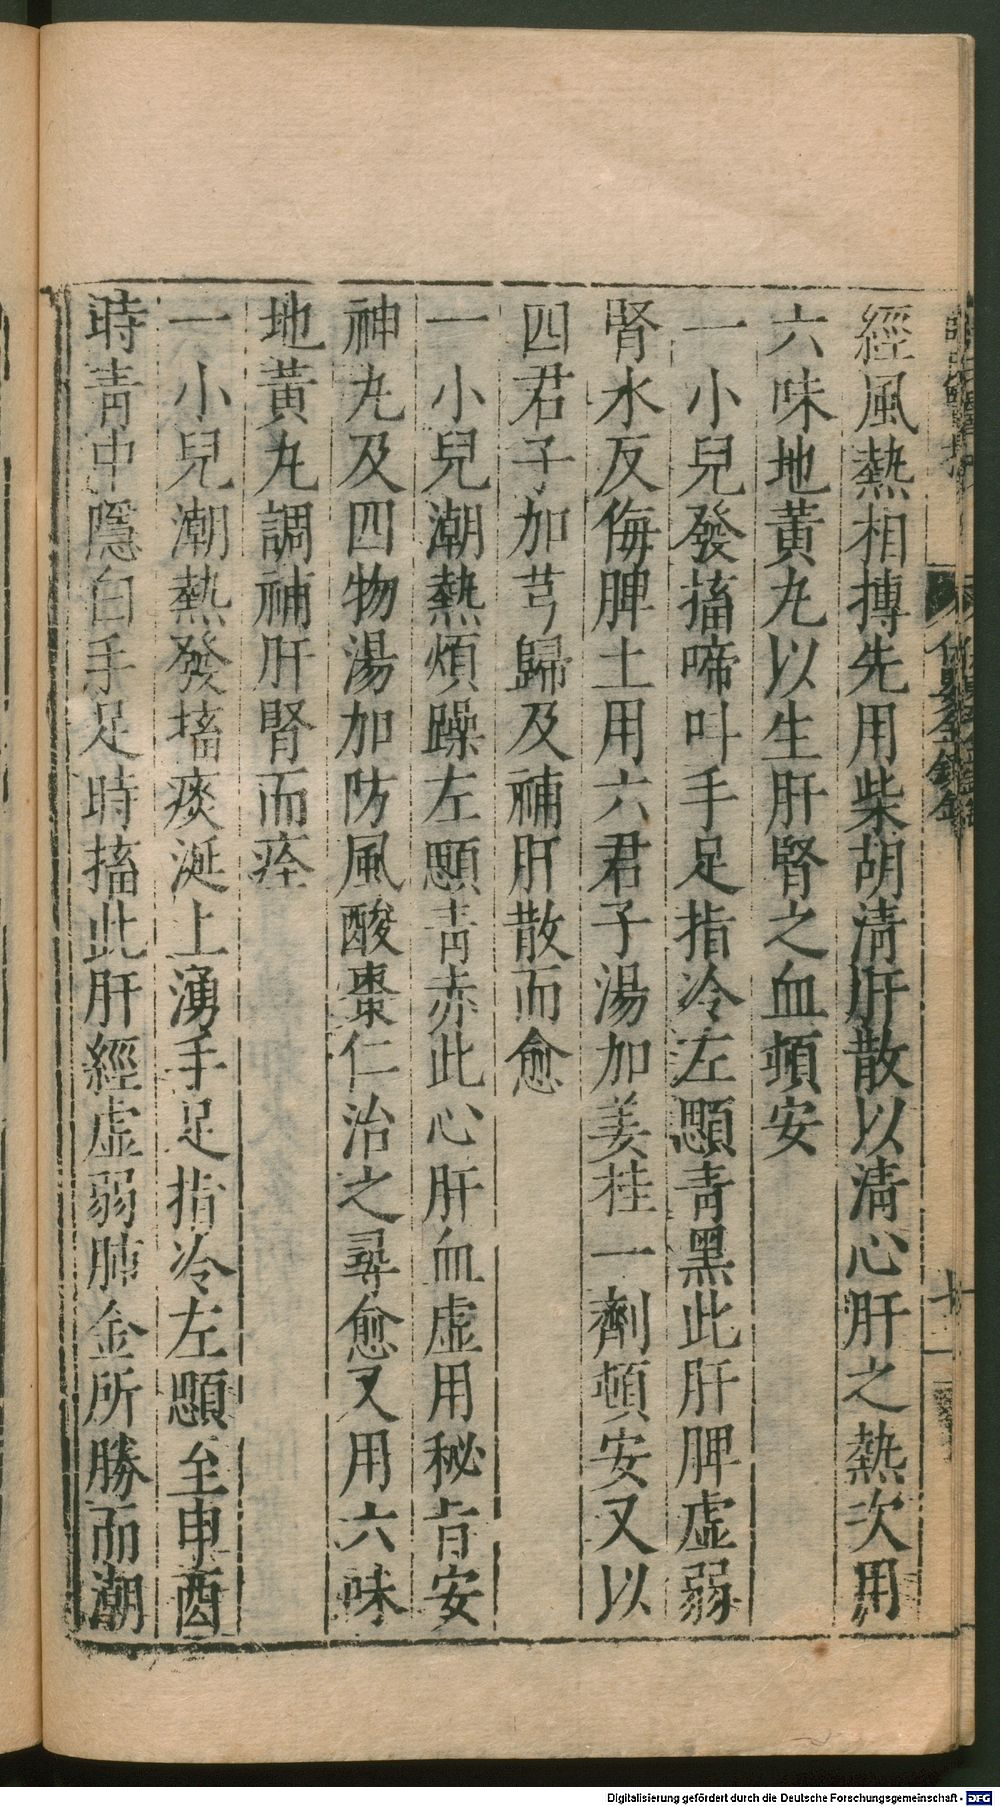 經風熱相搏先用柴胡淸肝散以淸心肝之熱次用
六味地黃丸以生肝腎之血頓安
一小兒發搐啼叫手足指冷左顋靑黑此肝脾虛弱
腎水反侮脾土用六君子湯加姜桂一劑頓安又以
四君子加芎歸及補肝散而愈
一小兒潮熱煩躁左顋靑赤此心肝血虛用秘旨安
神丸及四物湯加防風酸棗仁治之尋愈又用六味
地黃丸調補肝腎而痊
一小兒潮熱發搐痰涎上湧手足指冷左顋至申酉
時靑中隱白手足時搐此肝經虛弱肺金所勝而潮
保嬰金鏡錄
十二
Digitalisierung gefördert durch die Deutsche Forschungsgemeinschaft - DFG